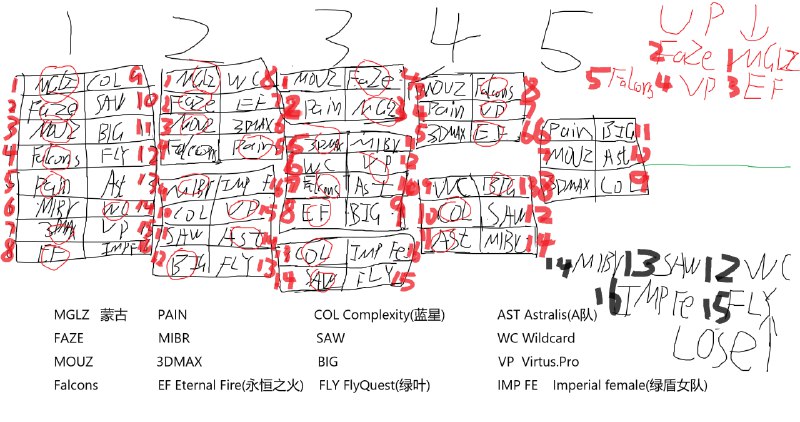 1 2 3 4 5
1 MGLZ COL 9
2 FaZe SAW 10
3 MOUZ BIG 11
4 Falcons FLY 12
5 Pain Ast 13
6 MIBR WC 14
7 3DMAX VP 15
8 EF IMPFe
1 MGLZ WC 8
2 FaZe EF 7
3 MOUZ 3DMAX 6
4 Falcons Pain 5
9 MIBR IMP F 16
10 COL VP 15
11 SAW Ast 14
12 BIG FLY 13
1 MOUZ FaZe 4
2 Pain MGLZ 3
5 3DMAX MIBR 11
6 WC VP 12
7 Falcons Ast 10
8 EF BIG 9
COL IMP Fe
14 SAW FLY 15
MOUZ Falcons 8
Pain VP 7
3DMAX EF 6
9 WC BIG 13
10 COL SAW 12
11 Ast MIBR 14
Pain BIG 11
MOUZ Ast 10
3DMAX COL 9
UP ↓
2 FaZe 1 MGLZ
5 Falcons 4 VP 3 EF
14 MIBR 13 SAW 12 WC
16 IMP Fe 15 FLY
LOSE ↑
MGLZ 蒙古 PAIN COL Complexity(蓝星) AST Astralis(A队)
FAZE MIBR SAW WC Wildcard
MOUZ 3DMAX BIG VP Virtus.Pro
Falcons EF Eternal Fire(永恒之火) FLY FlyQuest(绿叶) IMP FE Imperial female(绿盾女队)